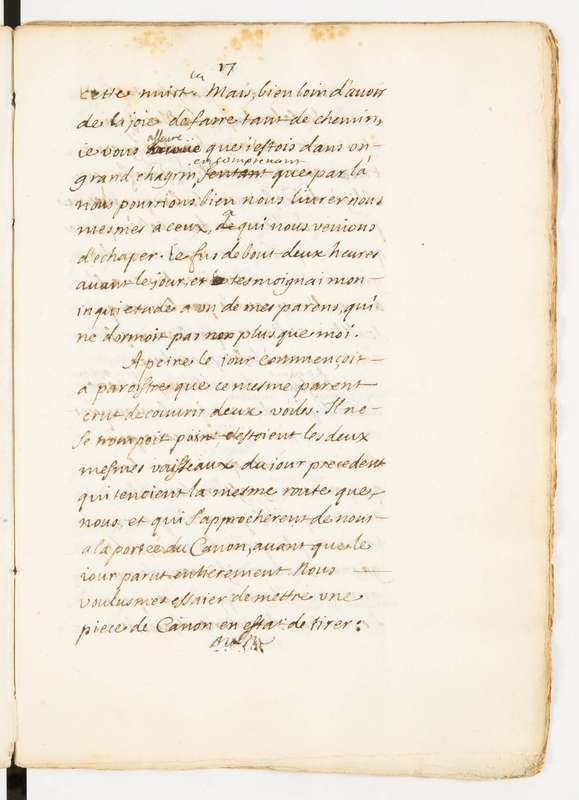 17
cette nuict là. Mais, bien loin d'avoir
de la joie de faire tant de chemin,
ie vous asseure que i'estois dans un
grand chagrin, en comprenant sentant que par là
nous pourrions bien nous livrer nous
mesmes a ceux, a qui nous venions
d'échaper. Ie fus debout deux heures
avant le jour, et tesmoignai mon
inquietude a un de mes parens, qui
ne dormoit pas non plus que moi.
A peine le jour commençoit
a paroistre que ce mesme parent
crut decouvrir deux voiles. Il ne
se trompoit point c'estoient les deux
mesmes vaisseaux du jour precedent
qui tenoient la mesme route que
nous, et qui s'approcherent de nous
a la portée du Canon, avant que le
iour parut entierement. Nous
voulusmes essaier de mettre une
piece de Canon en estat de tirer: